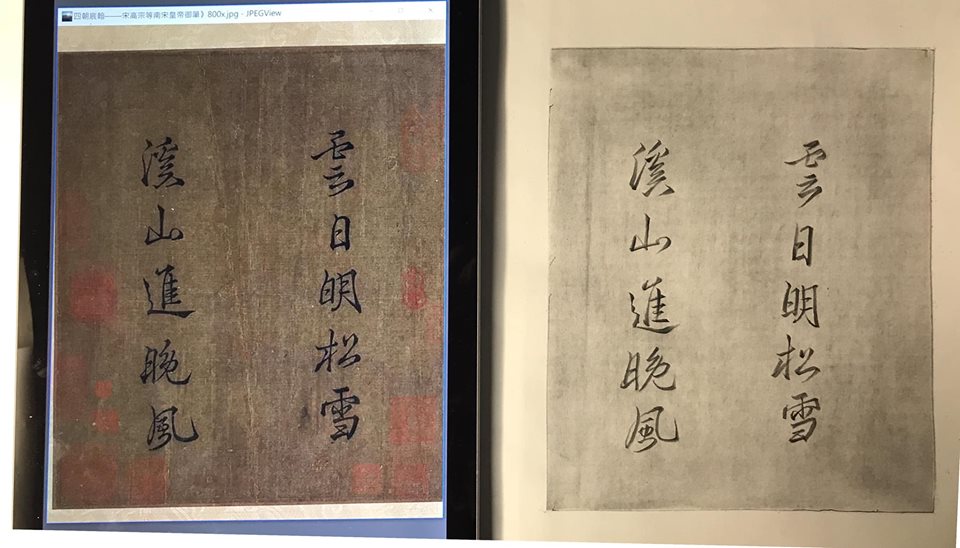 四朝宸翰——宋高宗等南宋皇帝御筆》800x.jpg - JPEGView
雲日明松雪
溪山進晚風
雲日明松雪
溪山進晚風